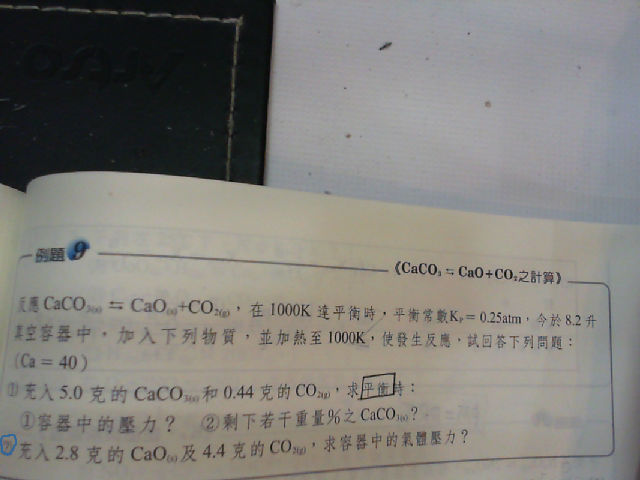 Arteo
例題9
《CaCO₃ ⇆ CaO+CO₂之計算》
反應 CaCO₃₍ₛ₎ ⇆ CaO₍ₛ₎+CO₂₍g₎,在 1000K 達平衡時,平衡常數Kₚ = 0.25atm,今於 8.2 升
真空容器中,加入下列物質,並加熱至 1000K,使發生反應,試回答下列問題:
(Ca = 40)
①充入 5.0 克的 CaCO₃₍ₛ₎ 和 0.44 克的 CO₂₍g₎,求平衡時:
①容器中的壓力? ②剩下若干重量%之 CaCO₃₍ₛ₎?
②充入 2.8 克的 CaO₍ₛ₎ 及 4.4 克的 CO₂₍g₎,求容器中的氣體壓力?